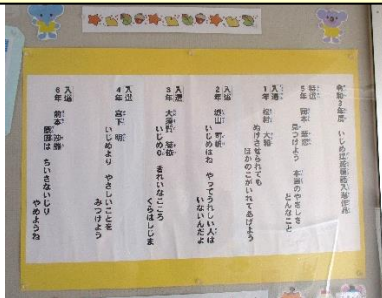 令和3年度　いじめ防止標語入選作品
特選
5年
見つけよう　本当のやさしさ
どんなこと
入選
1年　松村　大翔
ぬけさせられても
ほかのこがいれてあげよう
入選
2年
いじめはね　やってうれしい人は
いないんだよ
入選
3年
いじめ0　きれいなこころ
くらはしじま
入選
4年　宮下　明
いじめより　やさしいことを
みつけよう
入選
6年　前本
原因は　ちいさないじり
やめようね